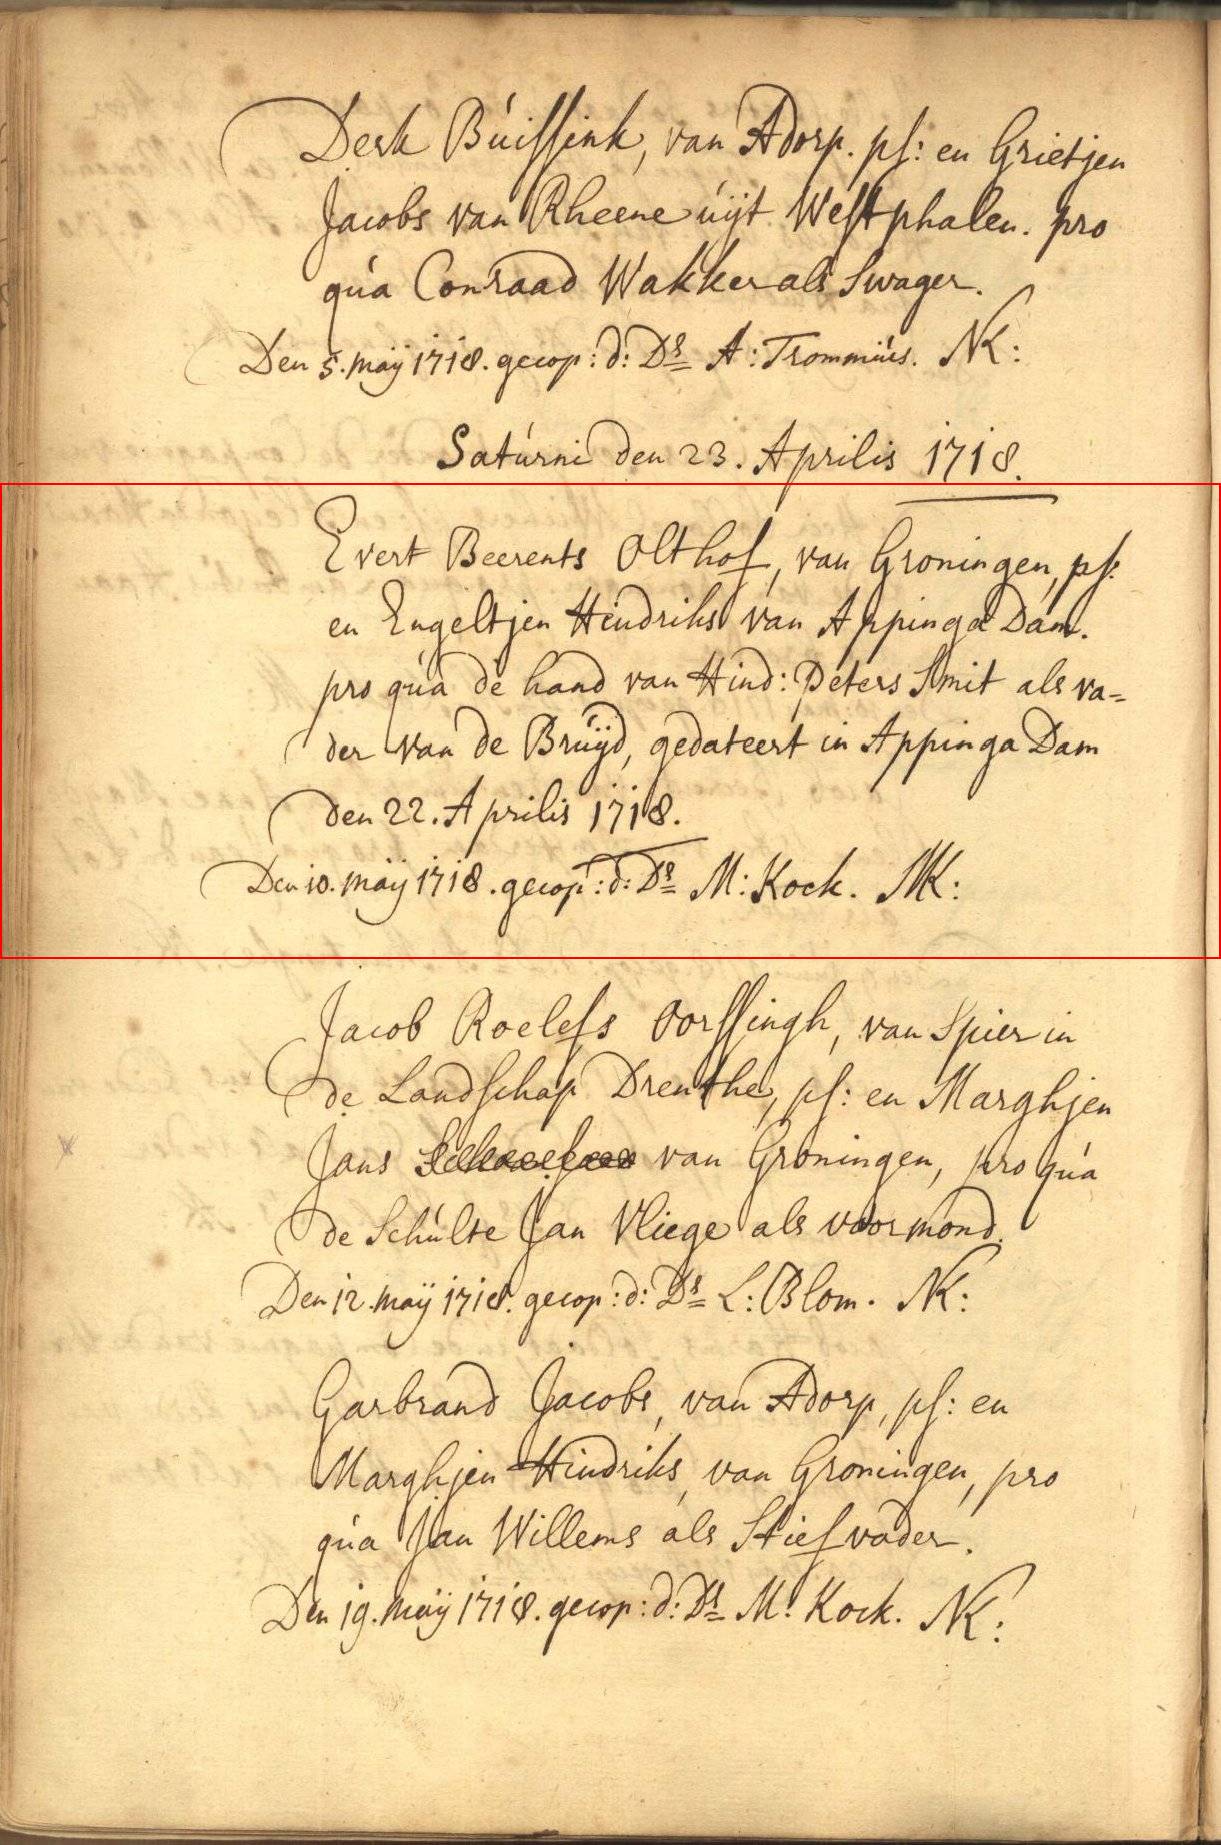 Derk Búissink, van Adorp. ps: en Grietjen
Jacobs van Rheene úijt Westphalen. pro
qúa Conraad Wakker als Swager.
Den 5. maÿ 1718. gecop: d: Ds A: Trommiús. NK:
Satúrni den 23. Aprilis 1718.
Evert Beerents Olthof, van Groningen, ps:
en Engeltjen Hindriks van Appinga Dam.
pro qúa de hand van Hind: Peters Smit als va=
der van de Brúÿd, gedateert in Appinga Dam
den 22. Aprilis 1718.
Den 10. maÿ 1718. gecop: d: Ds M: Kock. NK:
Jacob Roelefs Oorssingh, van Spier in
de Landschap Drenthe, ps: en Marghjen
Jans van Groningen, pro qúa
de Schúlte Jan Vliege als voormond.
Den 12. maÿ 1718. gecop: d: Ds L: Blom. NK:
Garbrand Jacobs, van Adorp, ps: en
Marghjen Hindriks, van Groningen, pro
qúa Jan Willems als Stiefvader.
Den 19. maÿ 1718. gecop: d: Ds M: Kock. NK: